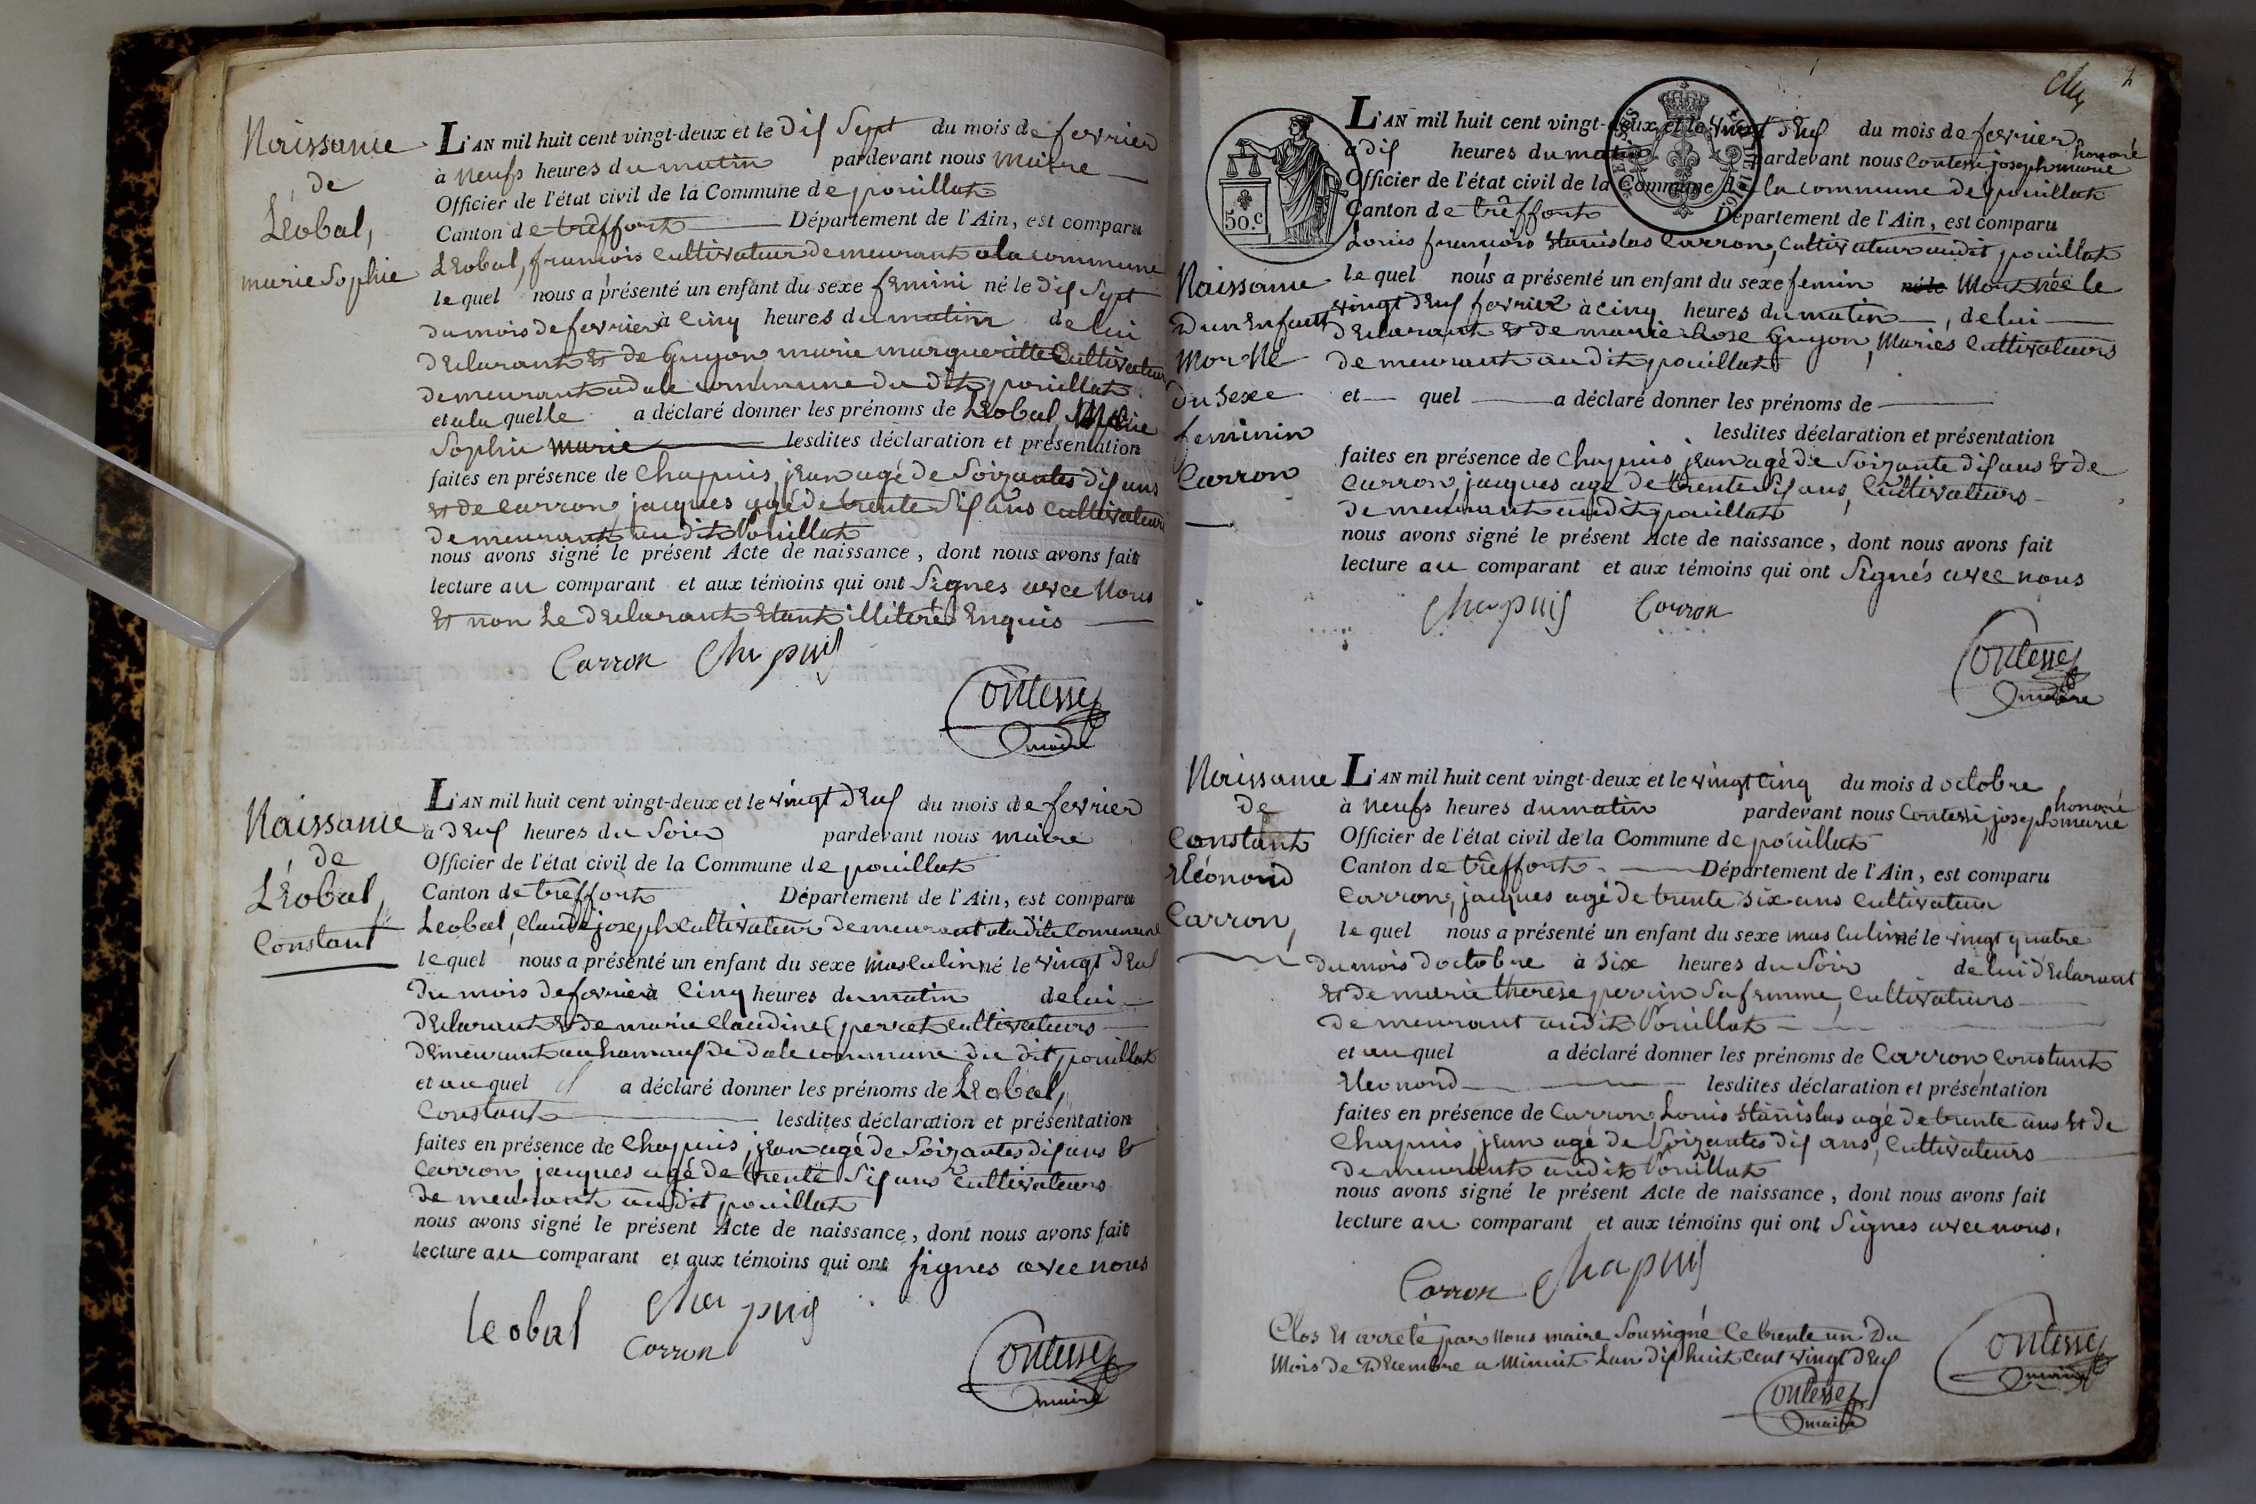 Naissance
de
Léobal,
marie Sophie
L'AN mil huit cent vingt-deux et le dix Sept du mois de fevrier
à neufs heures du matin pardevant nous maire
Officier de l'état civil de la Commune de pouillat
Canton de treffort Département de l'Ain, est comparu
Leobal, francois Cultivateur demeurant a la commune
le quel nous a présenté un enfant du sexe femini né le dix Sept
du mois de fevrier à Cinq heures du matin de lui
declarant et de Guyon marie margueritte Cultivateur
demeurant a dale commune du dit pouillat
et a la quelle a déclaré donner les prénoms de Léobal, Marie
Sophie marie lesdites déclaration et présentation
faites en présence de Chapuis, jean agé de Soizantes dix ans
et de Carron jacques agé de trente Six ans Cultivateurs
demeurant au dit Pouillat
nous avons signé le présent Acte de naissance, dont nous avons fait
lecture au comparant et aux témoins qui ont Signes avec Nous
Et non Le declarant Etant illiteré Enquis
Carron Chapuis
Contesse
maire
Naissance
de
Léobal,
Constant
L'AN mil huit cent vingt-deux et le vingt deux du mois de fevrier
à deux heures du Soir pardevant nous maire
Officier de l'état civil de la Commune de pouillat
Canton de treffort Département de l'Ain, est comparu
Leobal, Claude joseph Cultivateur demeurant a la dite Commune
le quel nous a présenté un enfant du sexe masculin né le vingt deux
du mois de fevrier à Cinq heures du matin de lui
declarant et de marie Claudine perret Cultivateurs
demeurant au hamaux de dale commune du dit pouillat
et au quel il a déclaré donner les prénoms de Léobal,
Constant lesdites déclaration et présentation
faites en présence de Chapuis, jean agé de Soizantes dix ans &
Carron jacques agé de trente Six ans Cultivateurs
demeurant au dit pouillat
nous avons signé le présent Acte de naissance, dont nous avons fait
lecture au comparant et aux témoins qui ont signes avec nous
leobal Chapuis
Carron
Contesse
maire
50.c
Naissance
D'un Enfant
Mort Né
du Sexe
feminin
Carron
L'AN mil huit cent vingt-deux et le vingt deux du mois de fevrier
à dix heures du matin pardevant nous Contesse joseph marie honoré
Officier de l'état civil de la Commune de la commune de pouillat
Canton de treffort Département de l'Ain, est comparu
Louis françois Stanislas Carron, Cultivateur au dit pouillat
le quel nous a présenté un enfant du sexe femin né le Mort née le
vingt deux fevrier à cinq heures du matin, de lui
declarant et de marie Rose Guyon, Mariés Cultivateurs
demeurant au dit pouillat
et quel a déclaré donner les prénoms de
lesdites déclaration et présentation
faites en présence de Chapuis jean agé de Soizante dix ans & de
Carron, jacques age de trente Six ans, Cultivateurs
demeurant au dit pouillat
nous avons signé le présent Acte de naissance, dont nous avons fait
lecture au comparant et aux témoins qui ont Signés avec nous
Chapuis Carron
Contesse
maire
Naissance
de
Constant
Eléonord
Carron,
L'AN mil huit cent vingt-deux et le vingt Cinq du mois d octobre
à Neufs heures du matin pardevant nous Contesse, joseph marie honoré
Officier de l'état civil de la Commune de pouillat
Canton de treffort Département de l'Ain, est comparu
Carron, jacques agé de trente six ans Cultivateur
le quel nous a présenté un enfant du sexe masculin né le vingt quatre
du mois d'octobre à Six heures du Soir de lui declarant
Et de marie therese perrin Sa femme, Cultivateurs
demeurant au dit Pouillat
et au quel a déclaré donner les prénoms de Carron, Constant
Eleonord lesdites déclaration et présentation
faites en présence de Carron, Louis Stanislas agé de trente ans et de
Chapuis, jean agé de Soizantes dix ans, Cultivateurs
demeurant au dit Pouillat
nous avons signé le présent Acte de naissance, dont nous avons fait
lecture au comparant et aux témoins qui ont Signes avec nous,
Carron Chapuis
Contesse
maire
Clos et arreté par Nous maire Soussigné Ce trente un Du
Mois de Decembre a Minuit Lan dix huit cent vingt deux
Contesse
maire